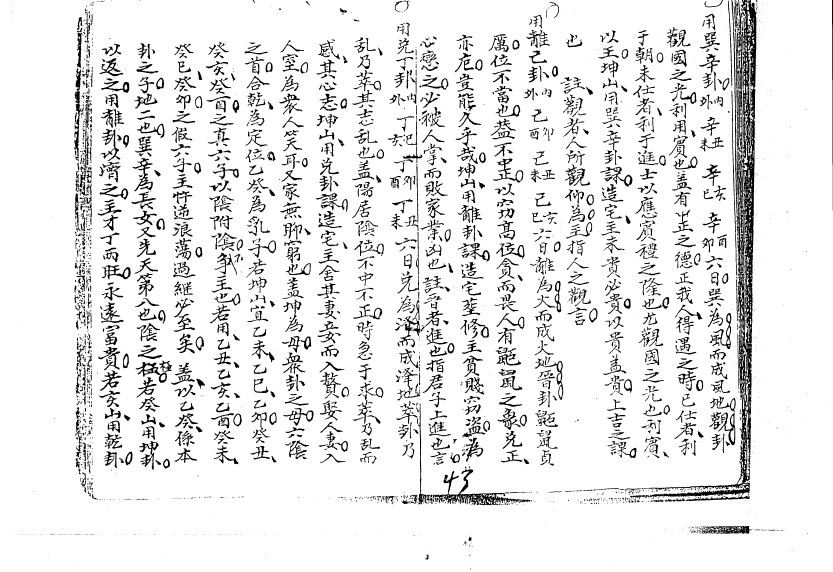 用巽辛卦內外辛丑辛未辛亥辛巳辛酉辛卯六日巽為風而成風地觀卦
觀國之光利用賓也盖有中正之德正我人得遇之時已仕者利
于朝未仕者利于進士以應賓禮之隆也尤觀國之光也利賓
以王坤山用巽辛卦課造宅主未貴必貴以貴益貴上吉之課
也 註觀者人所觀仰為主指人之觀言
用離己卦內外己卯己酉己丑己未己亥己巳六日離為火而成火地晉卦鼫鼠貞
厲位不當也盖不中正以竊高位貪而畏人有鼫鼠之象九正
亦厄豈能久乎哉坤山用離卦課造宅塋修主貧賤窃盜為
心戀之必被人掌而敗家業凶也註晉者進也指君子上進也言
用兌丁卦內外丁巳丁亥丁卯丁酉丁丑丁未六日兌為澤而成澤地萃卦乃
乱乃萃其志乱也盖陽居陰位不中不正時急于求萃乃乱而
感其心志坤山用兌卦課造宅主舍其妻妾而入贅娶人妻入
人室為衆人笑耳又家無聊窮也盖坤為母衆卦之母六陰
之首合乾為定位乙癸為乳子若坤山宜乙未乙巳乙卯癸丑
癸亥癸酉之真六子以陰附陰不爭主也若用乙丑乙亥乙酉癸未
癸巳癸卯之假六子主忤逆浪蕩過繼必至矣 盖以乙癸係本
卦之子地二也巽辛為長女又先天第八也陰之極若癸山用坤卦
以返之用離卦以濟之主才丁而旺永遠富貴若亥山用乾卦
43